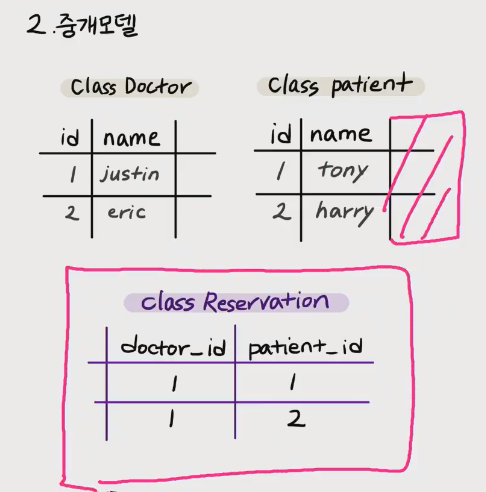 2. 중개모델
Class Doctor
id name
1 justin
2 eric
Class patient
id name
1 tony
2 harry
class Reservation
doctor_id patient_id
1 1
1 2